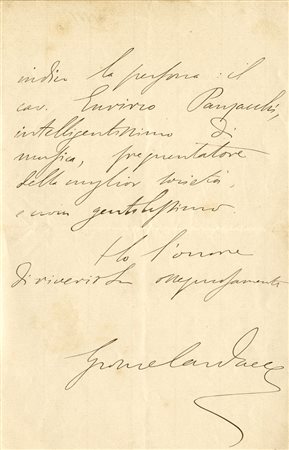 indico la persona: il
cav. Enrico Panzacchi,
intelligentissimo di
musica, frequentatore
della miglior società,
e uom gentilissimo.
Ho l'onore
di riverirla ossequiosamente
Giosue Carducci